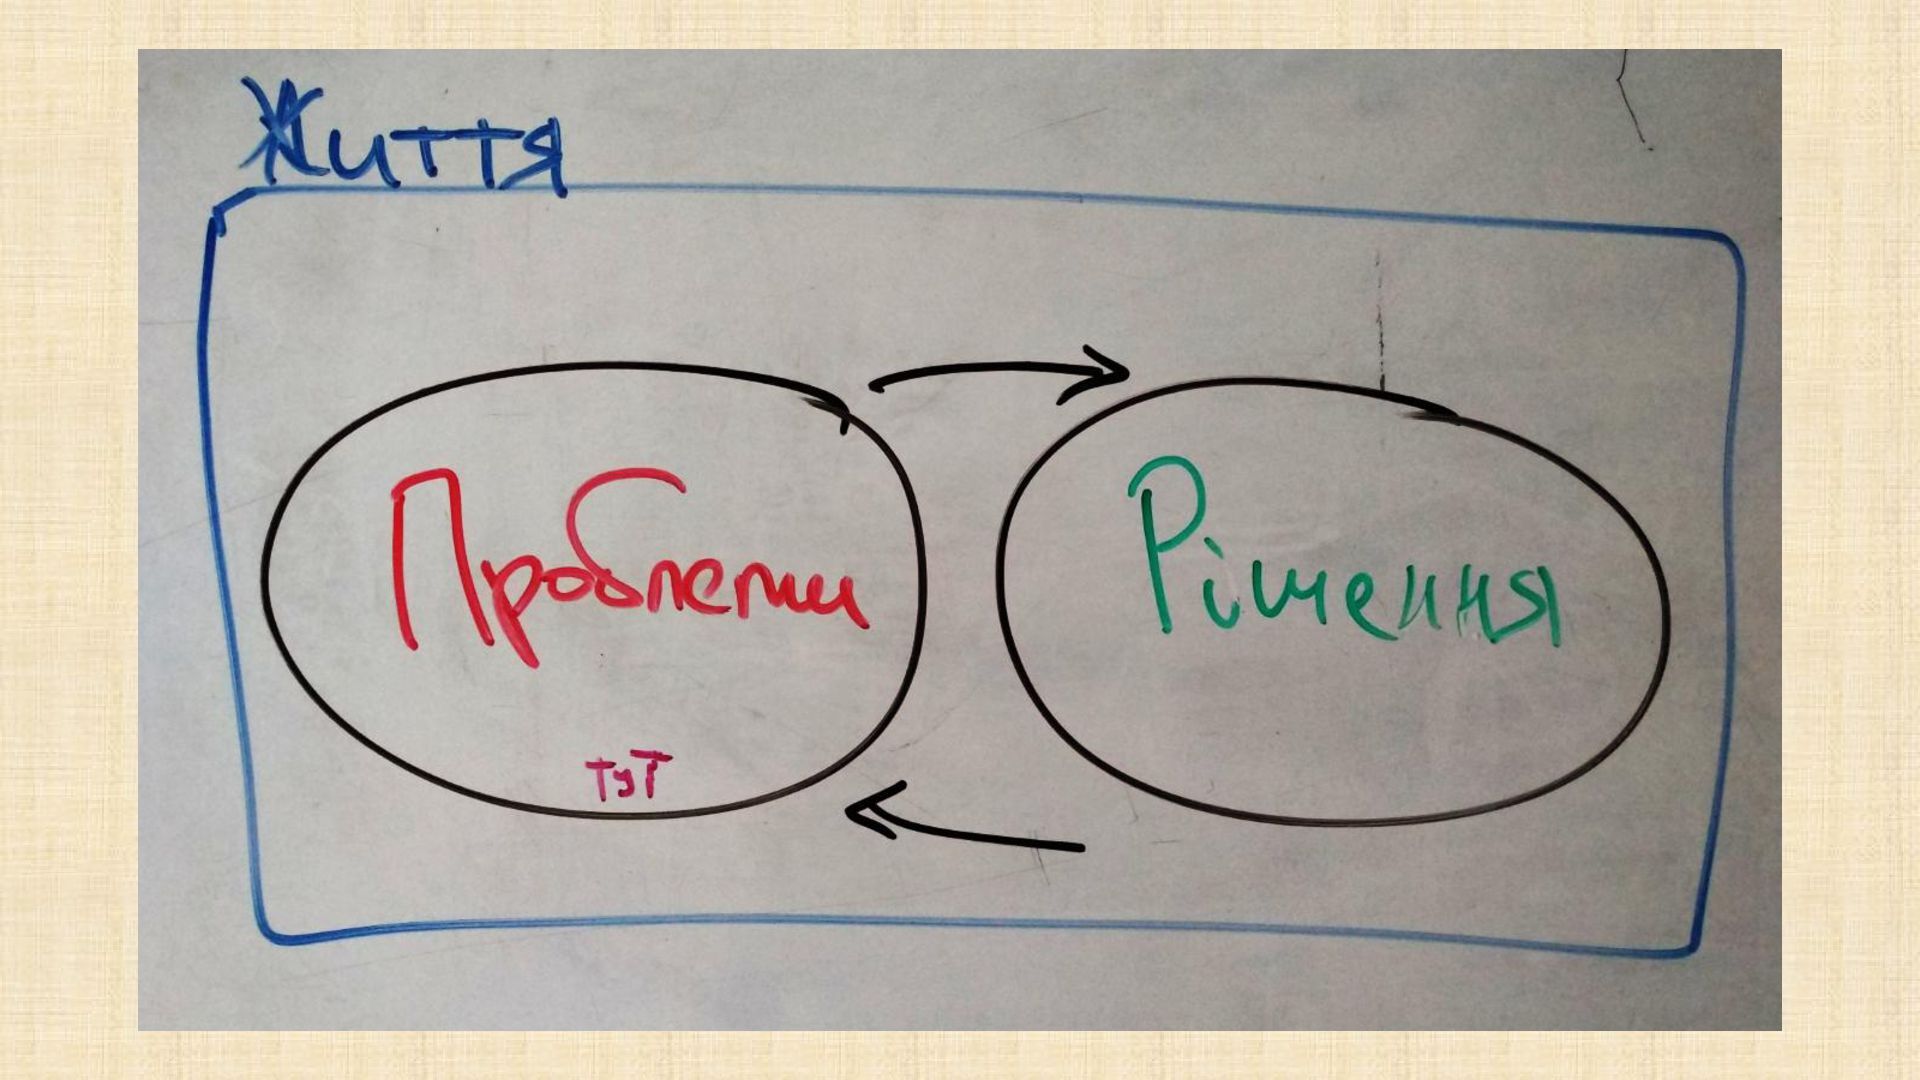 Життя
Проблеми
Рішення
тут